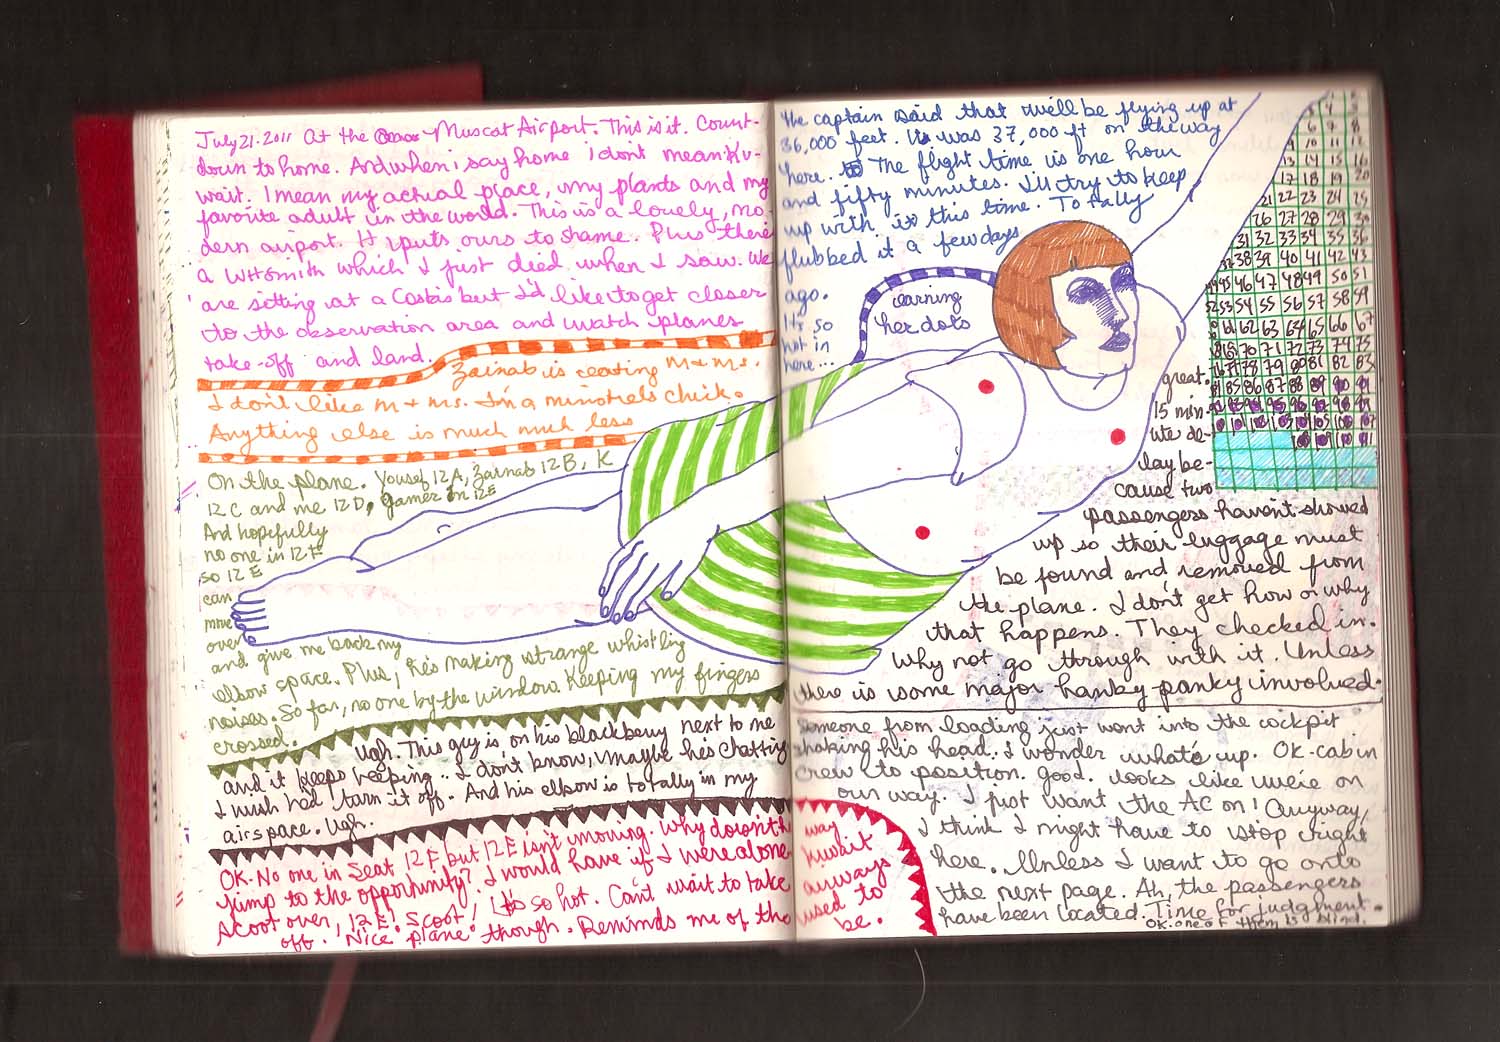 July 21. 2011 At the Muscat Airport. This is it. Count-
down to home. And when i say home i don't mean Ku-
wait. I mean my actual place, my plants and my
favorite adult in the world. This is a lovely, mo-
dern airport. It puts ours to shame. Plus there's
a WHSmith which I just died when I saw. We
are sitting at a Costa's but I'd like to get closer
to the observation area and watch planes
take-off and land.
Zainab is eating M & Ms.
I don't like M & Ms. I'm a minstrels chick.
Anything else is much much less
On the plane. Yousef 12A, Zainab 12B, K
12C and me 12D, gamer in 12E
And hopefully
no one in 12F
so 12E
can
move
over
and give me back my
elbow space. Plus, he's making strange whistling
noises. So far, no one by the window. Keeping my fingers
crossed.
Ugh. This guy is on his blackberry next to me
and it keeps beeping. I don't know, maybe he's chatting
I wish he'd turn it off. And his elbow is totally in my
airspace. Ugh.
OK. No one in Seat 12F but 12E isn't moving. Why doesn't he
jump to the opportunity? I would have if I were alone
Scoot over, 12E! Scoot! It's so hot. Can't wait to take
off. Nice plane though. Reminds me of the
way
kuwait
airways
used to
be.
the captain said that we'll be flying up at
36,000 feet. It was 37,000 ft on the way
here. The flight time is one hour
and fifty minutes. I'll try to keep
up with it this time. Totally
flubbed it a few days
ago.
It's so
hot in
here...
earning
her dots
great.
15 min-
ute de-
lay be-
cause two
passengers haven't showed
up so their luggage must
be found and removed from
the plane. I don't get how or why
that happens. They checked in.
Why not go through with it. Unless
there is some major hanky-panky involved.
Someone from loading just went into the cockpit
shaking his head. I wonder what's up. OK- cabin
crew to position. good. looks like we're on
our way. I just want the AC on! Anyway,
I think I might have to stop right
here. Unless I want to go onto
the next page. Ah, the passengers
have been located. Time for judgment.
OK. one of them is blind.